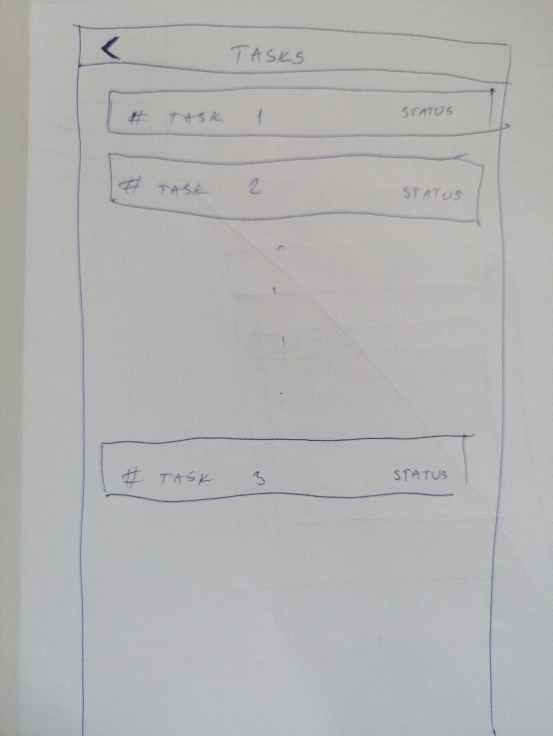 TASKS
# TASK 1 STATUS
# TASK 2 STATUS
# TASK 3 STATUS